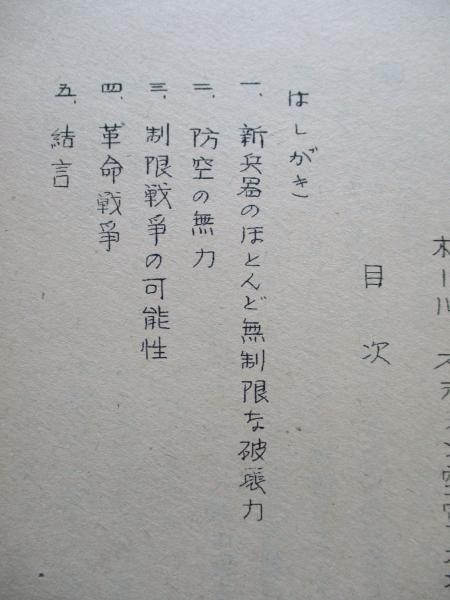 目次
はしがき
一、新兵器のほとんど無制限な破壊力
二、防空の無力
三、制限戦争の可能性
四、革命戦争
五、結言